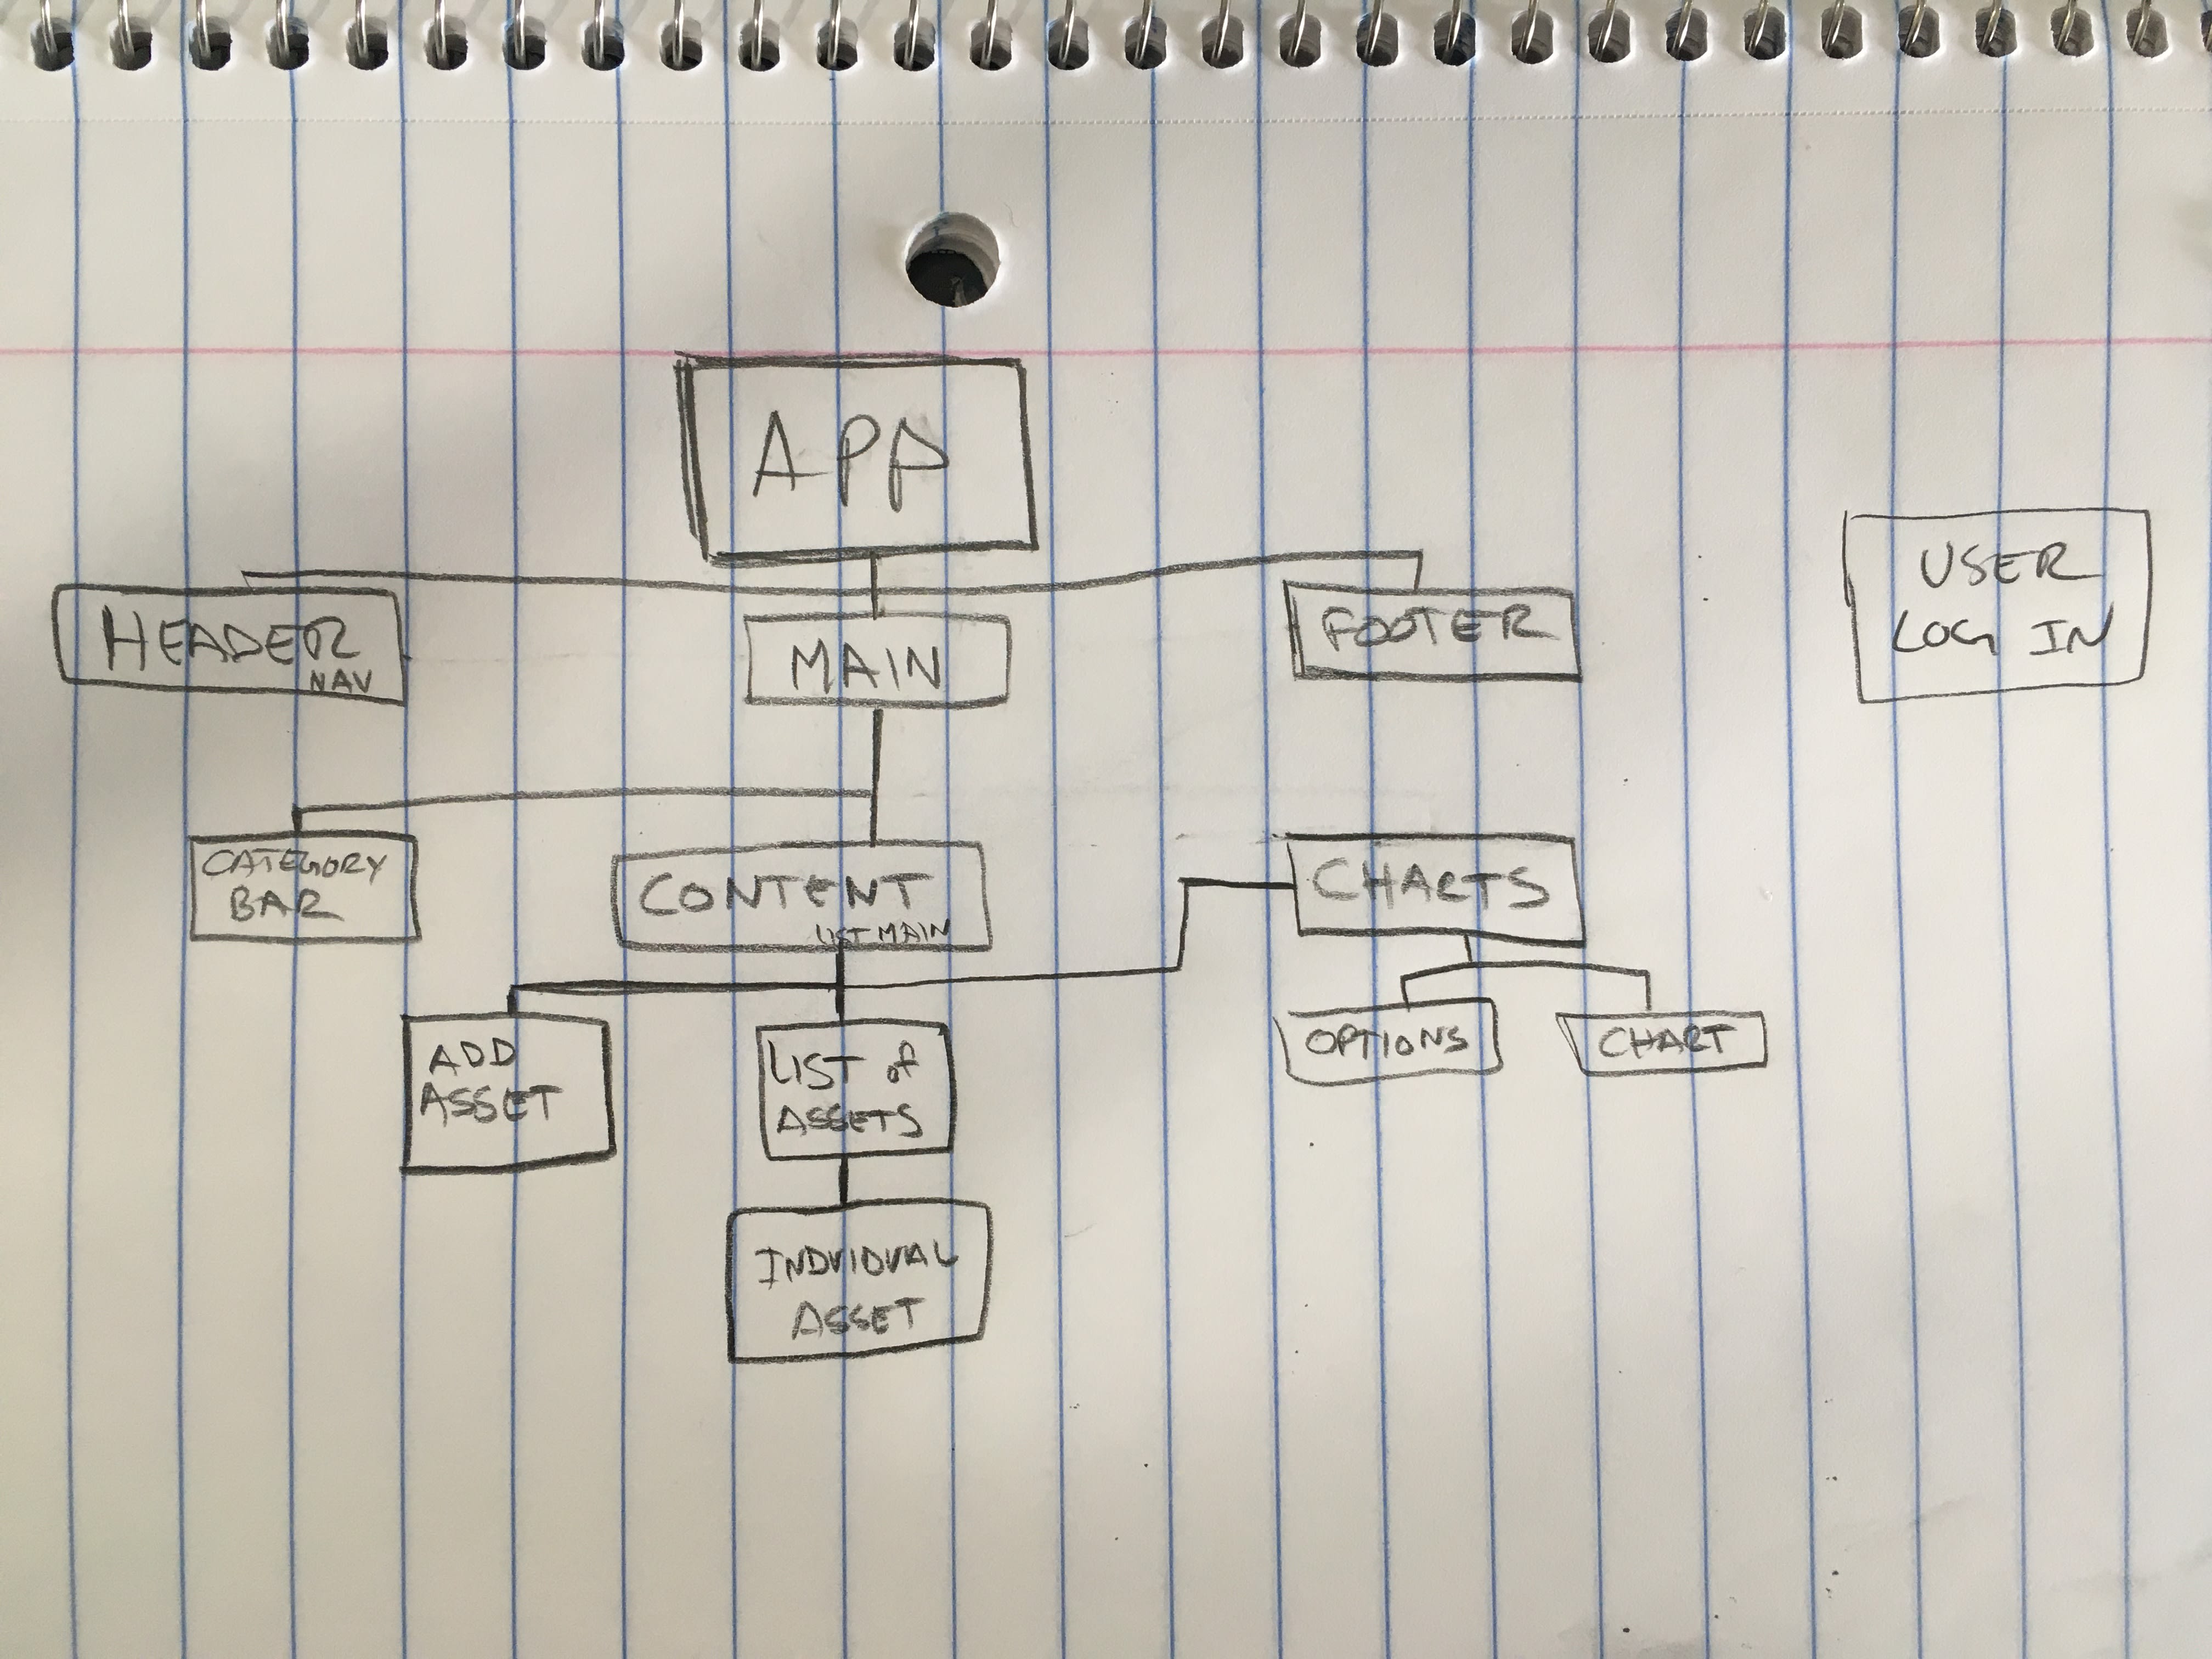 APP
HEADER
NAV
MAIN
FOOTER
USER
LOG IN
CATEGORY
BAR
CONTENT
LIST MAIN
CHARTS
ADD
ASSET
LIST of
ASSETS
OPTIONS
CHART
INDVIDUAL
ASSET